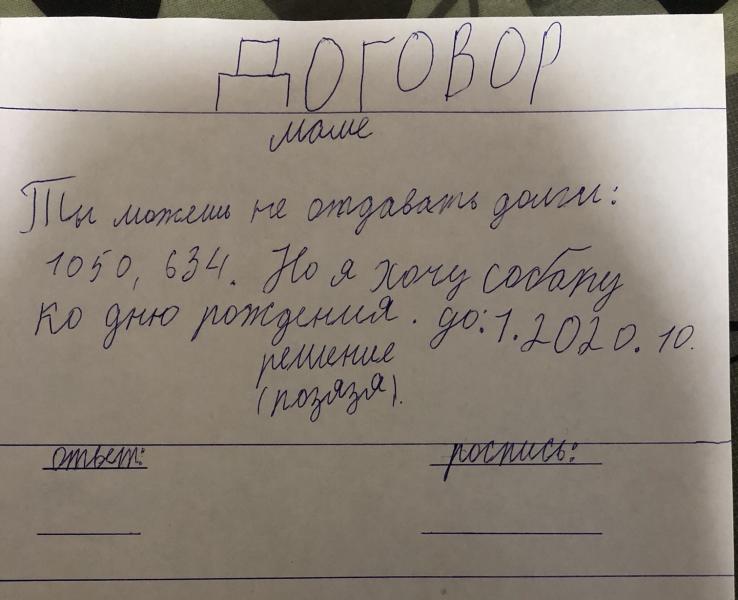 ДОГОВОР
маме
Ты можешь не отдавать долги:
1050, 634. Но я хочу собаку
ко дню рождения. до:1.2020.10.
решение
(позязя).
ответ: роспись: